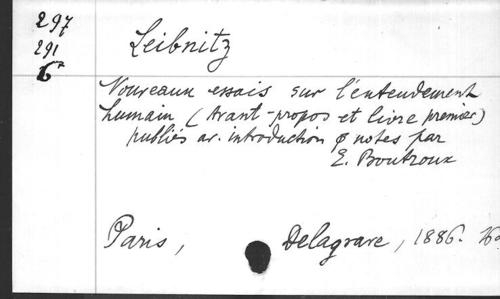 297
291
6ª
Leibnitz
Nouveaux essais sur l'entendement
humain (Avant-propos et livre premier)
publiés av. introduction & notes par
E. Boutroux
Paris, Delagrave, 1886.